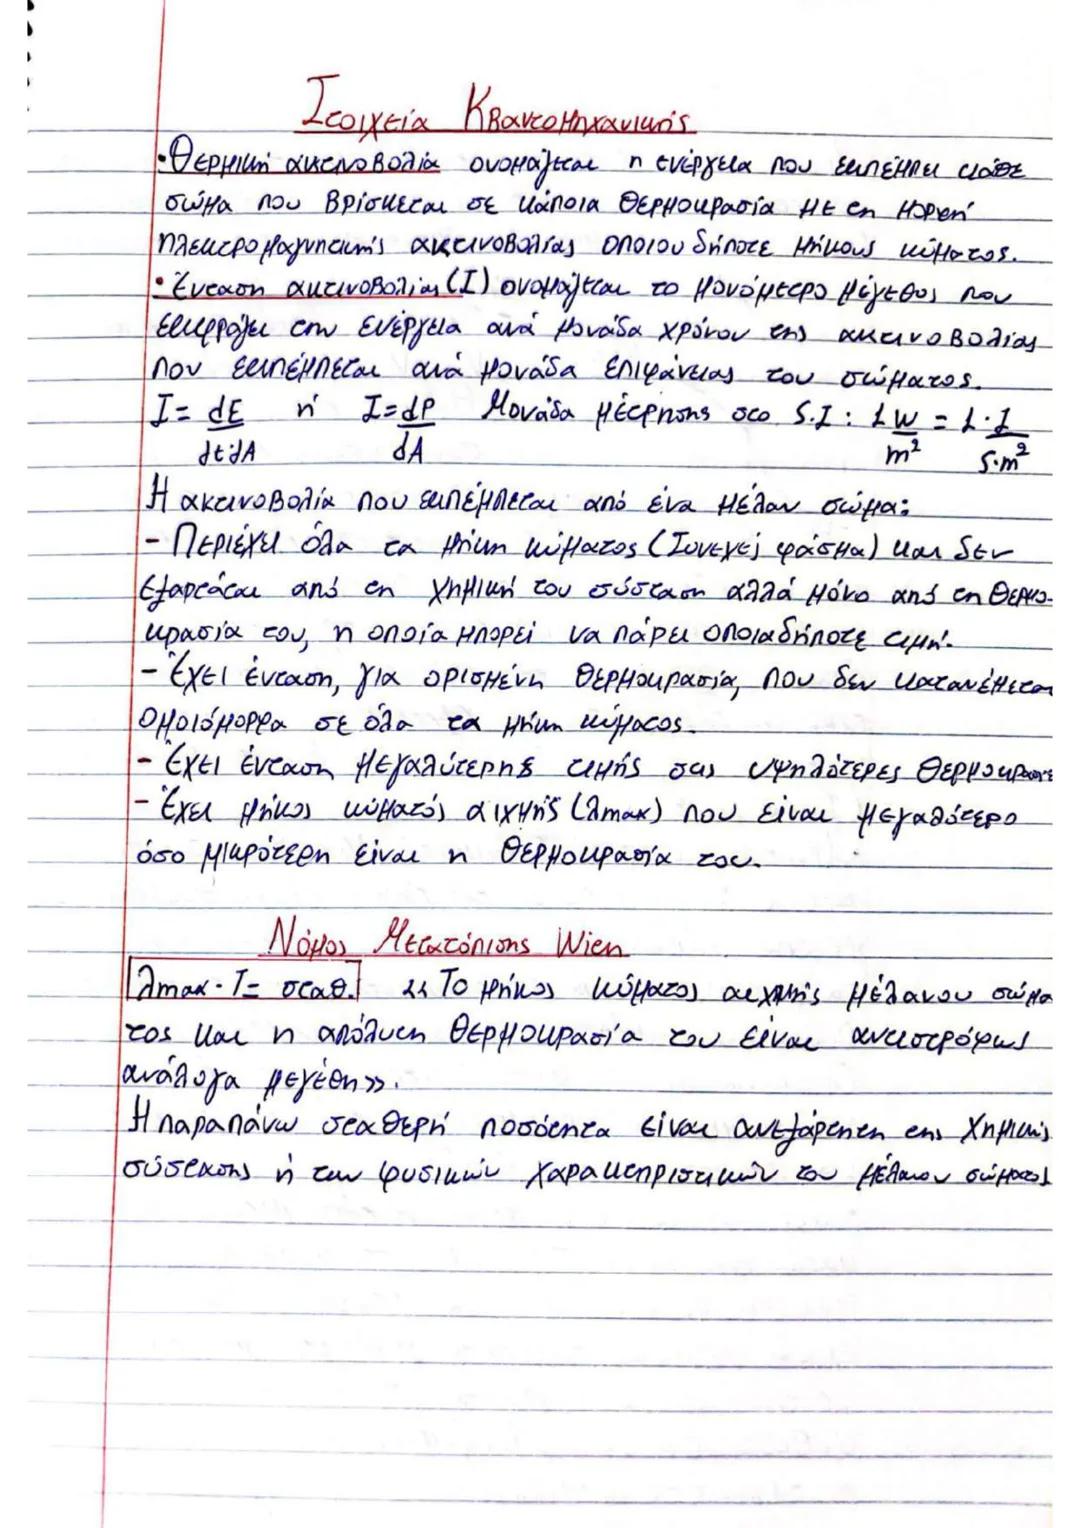 Στοιχεία Κβαντομηχανικής
• Θερμική ακτινοβολία ονομάζεται η ενέργεια που εκπέμπει κάθε
σώμα που βρίσκεται σε κάποια θερμοκρασία με τη μορφή
ηλεκτρομαγνητικής ακτινοβολίας οποιουδήποτε μήκους κύματος.
• Ένταση ακτινοβολίας (I) ονομάζεται το μονόμετρο μέγεθος που
εκφράζει την ενέργεια ανά μονάδα χρόνου της ακτινοβολίας
που εκπέμπεται ανά μονάδα επιφάνειας του σώματος.
I = dE/dt·dA ή I = dP/dA Μονάδα μέτρησης στο S.I : 1 W/m² = 1 · J/s·m²
Η ακτινοβολία που εκπέμπεται από ένα μέλαν σώμα:
- Περιέχει όλα τα μήκη κύματος (Συνεχές φάσμα) και δεν
εξαρτάται από τη χημική του σύσταση αλλά μόνο από τη θερμο-
κρασία του, η οποία μπορεί να πάρει οποιαδήποτε τιμή.
- Έχει ένταση, για ορισμένη θερμοκρασία, που δεν κατανέμεται
ομοιόμορφα σε όλα τα μήκη κύματος.
- Έχει ένταση μεγαλύτερης τιμής στις υψηλότερες θερμοκρασίες
- Έχει μήκος κύματος αιχμής (λmax) που είναι μεγαλύτερο
όσο μικρότερη είναι η θερμοκρασία του.
Νόμος Μετατόπισης Wien
λmax · T = σταθ. << Το μήκος κύματος αιχμής μέλανου σώμα
τος και η απόλυτη θερμοκρασία του είναι αντιστρόφως
ανάλογα μεγέθη >>.
Η παραπάνω σταθερή ποσότητα είναι ανεξάρτητη της χημικής
σύστασης ή των φυσικών χαρακτηριστικών του μέλανου σώματος